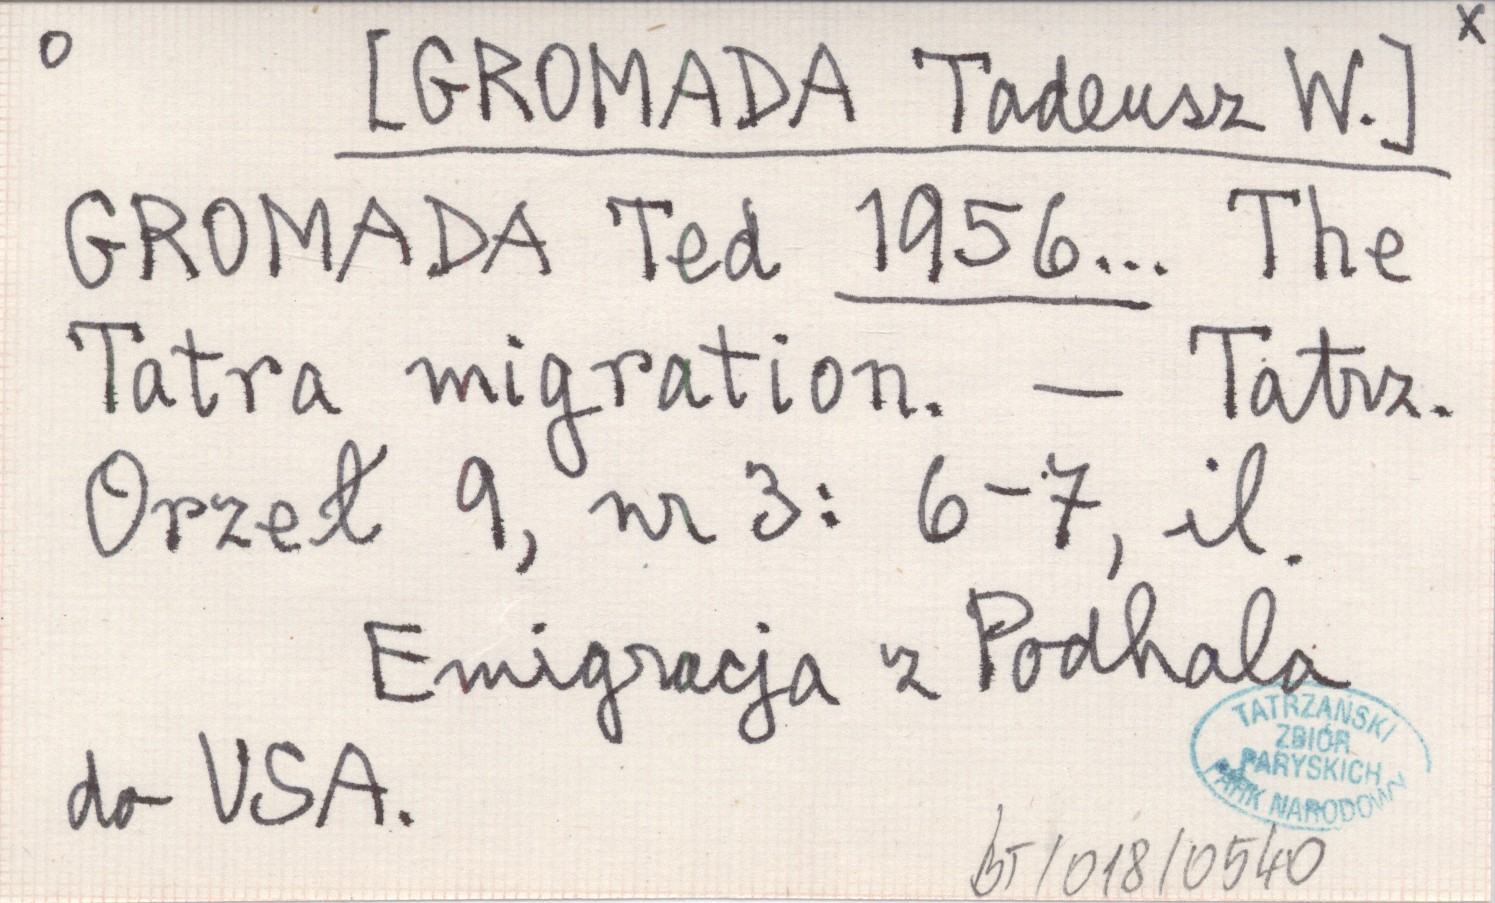 o [GROMADA Tadeusz W.] x
GROMADA Ted 1956... The
Tatra migration. — Tatrz.
Orzeł 9, nr 3: 6-7, il.
Emigracja z Podhala
do USA.
TATRZAŃSKI
ZBIÓR
PARYSKICH
PARK NARODOWY
BT/018/0540